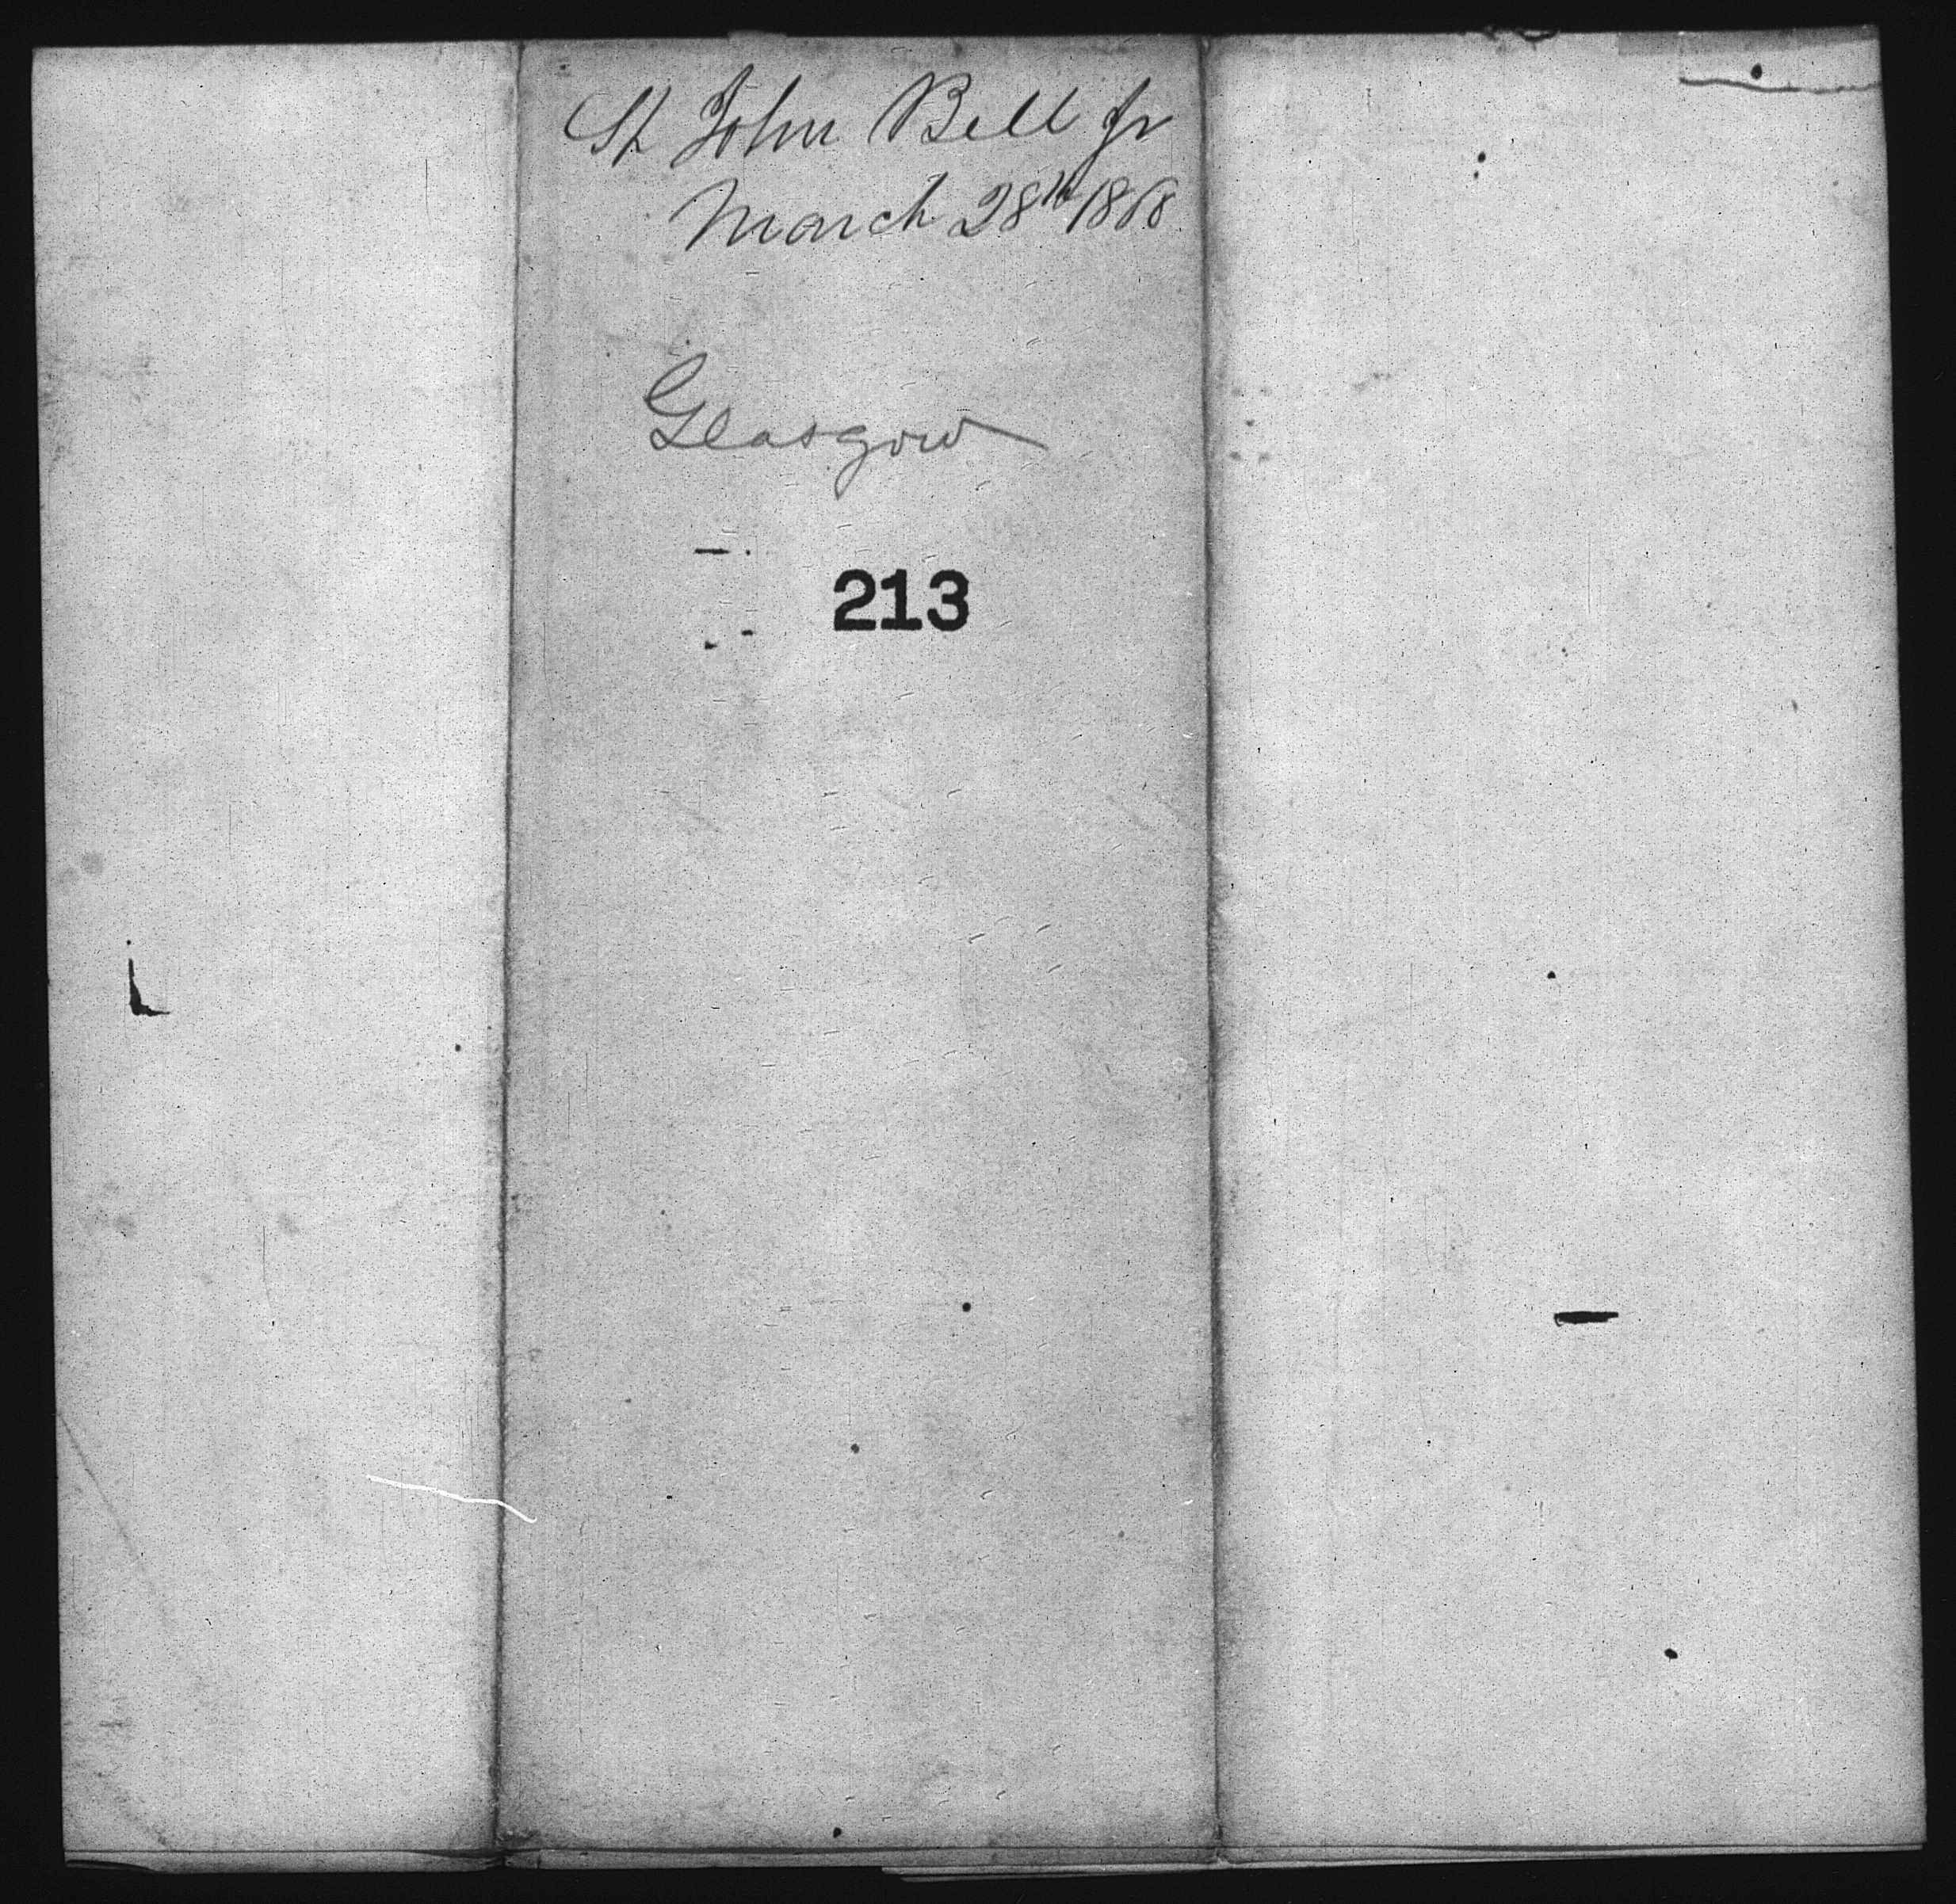 St John Bell Jr
March 28th 1868
Glasgow
213